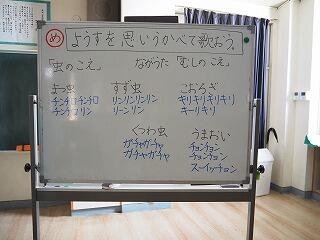 め ようすを思いうかべて歌おう。
「虫のこえ」 ながうた「むしのこえ」
まつ虫 すず虫 こおろぎ
チンチロチンチロ リンリンリンリン キリキリキリキリ
チンチロリン リーンリン キーリキリ
くつわ虫 うまおい
ガチャガチャ チョンチョン
ガチャガチャ チョンチョン
スーイッチョン